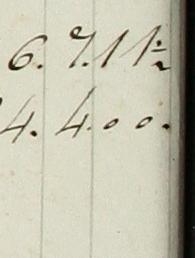 6. 7. 11½
4. 4. 0 0.